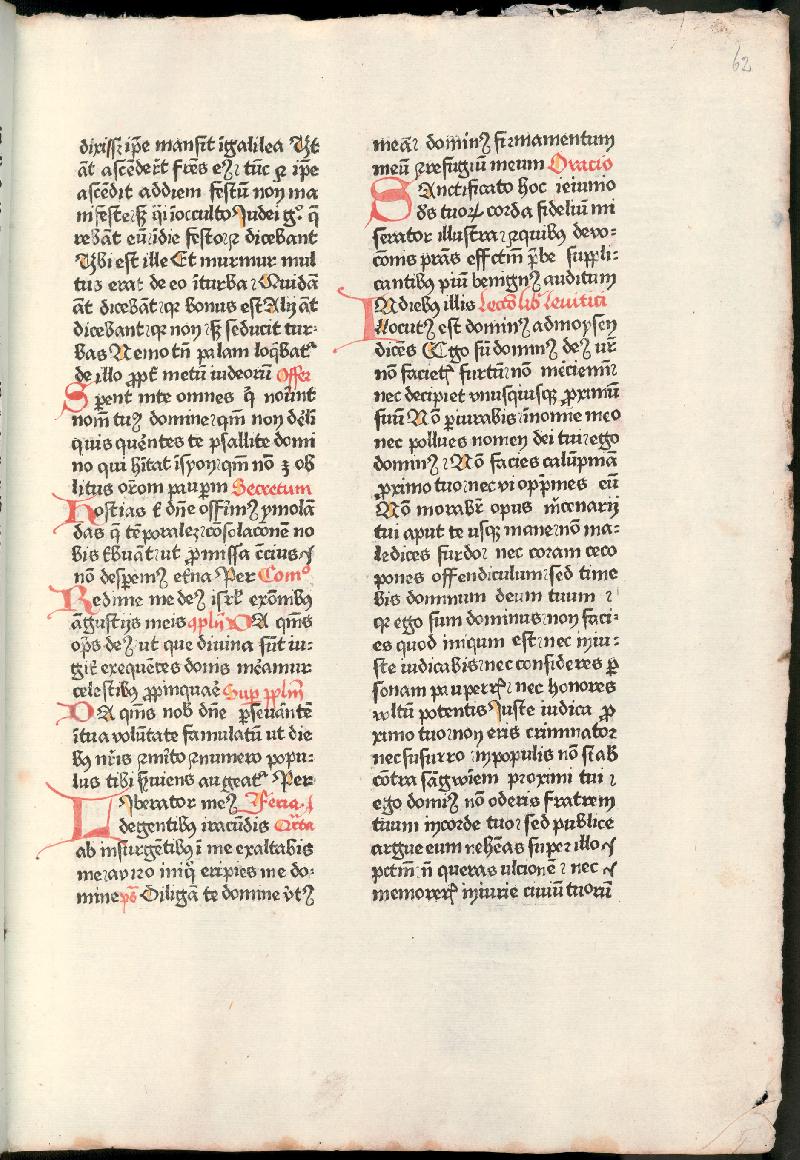 62
dixiss; ip̄e mansit ī galilea Vt
āt ascēder̄t fr̄es eꝰ tūc ⁊ ip̄e
ascēdit ad diem festū non ma
nifeste sꝫ q̄i ī occulto Iudei gͦ q̄
rebāt eū ī die festo ⁊ dicebant
Vbi est ille Et murmur mul
tus erat de eo ī turba Quidā
āt dicebāt qꝛ bonus est Alij āt
dicebant qꝛ non sꝫ seducit tur-
bas Nemo tn̄ palam loq̄bat᷑
de illo ꝓpt̄ metū iudeorū Offer
Sperent in te omnes q̄ nou̅nt
nom̄ tuū domine qm̄ non dēli
quis quēntes te psallite domi
no qui hītat ī syon qm̄ nō ꝫ ob
litus or̄om paup̄m Secretum
Hostias t̄ dn̄e offīmꝰ ymolā
das q̄ tēporalez cōsolaconē no
bis t̄buāt ut ꝓmissa cc̄ius
nō desperemꝰ et̄na Per Comͦ
Redime me deꝰ isrl̄ ex om̄ibꝰ
āgustijs meis 9pl̄ij DA qm̄s
op̄s deꝰ ut que diuina sūt iu-
git̄ exequētes donis mēamur
celestibꝰ ꝓpinquaē Sup̄ pplm̄
DA qm̄s nob̄ dn̄e pseuātē
ī tua volūtate famulatū ut die
bꝰ nr̄is ⁊ mīto ⁊ numero popu-
lus tibi ẜuiens augeat᷑ Per
Liberator meꝰ Feria
de gentibꝰ iracūdis Q̄rta
ab insurgētibꝰ ī me exaltabis
me a viro iniq̄ eripies me do-
mine ps̄ Diligā te domine v̄tꝰ
mea dominꝰ firmamentum
meū ⁊ refugiū meum Oracio
SAnctificato hoc ieiunio
ds̄ tuoꝝ corda fidelium mi
serator illustra ⁊ quibus deuo-
cōnis prās effctm̄ p̄be suppli-
cantibus piū benignꝰ auditum
INdiebꝰ illis Leccō lib̄ leuitici
Locutꝰ est dominꝰ ad moysen
dicēs Ego sū dominꝰ deꝰ vr̄
nō facietꝭ furtū nō mēciemī
nec decipiet vnusquisqꝫ ꝓximū
suū Nō piurabis ī nomine meo
nec pollues nomen dei tui ego
dominꝰ Nō facies calūpmā
ꝓximo tuo nec vi opp̄mes eū
Nō morabr̄ opus m̄cenarij
tui aput te usqꝫ mane nō ma-
ledices surdo nec coram ceco
pones offendiculum sed time
bis dominum deum tuum
qꝛ ego sum dominus non faci-
es quod iniqum est nec iniu-
ste iudicabis nec consideres ꝑ
sonam pauperꝭ nec honores
voltū potentis Iuste iudica ꝓ
ximo tuo non eris criminator
nec susurro in populis nō stab
cōtra sāgwīem proximi tui
ego domiꝰ nō oderis fratrem
tuum in corde tuo sed publice
argue eum ne hēas super illo
pctm̄ n̄ queras ulcionē nec
memor erꝭ iniurie ciuiū tuorū